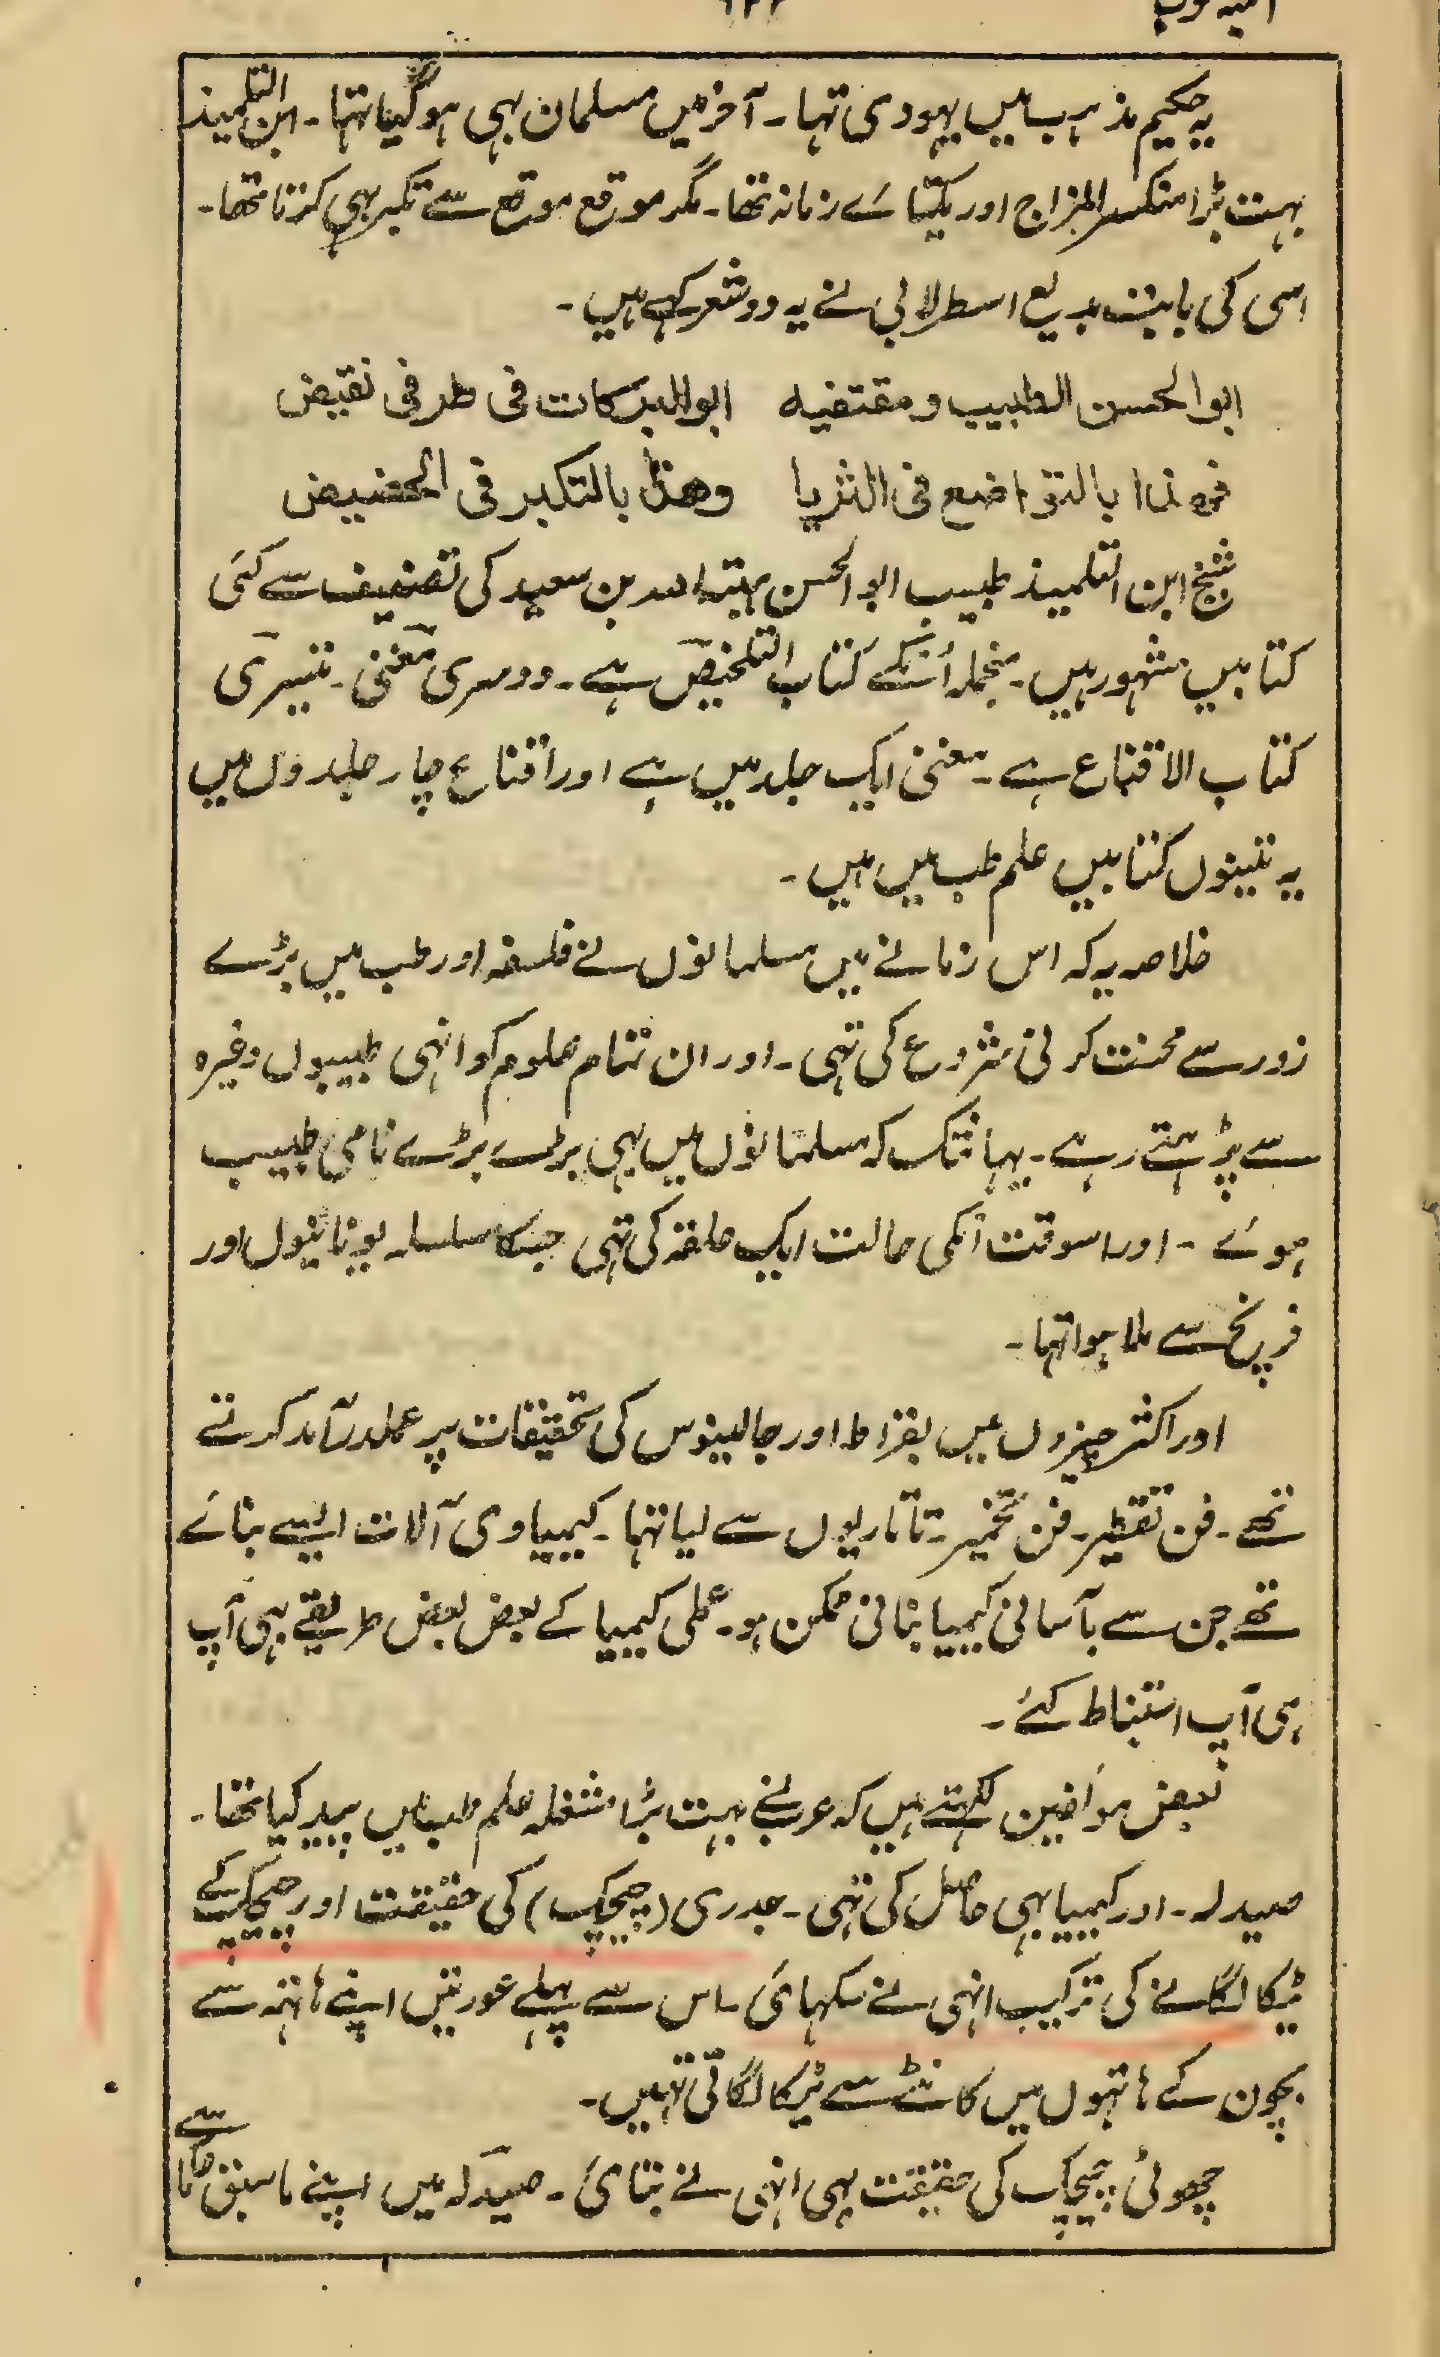 یہ حکیم مذہب میں یہودی تہا۔ آخر میں مسلمان بہی ہوگیا تہا۔ ابن التلمیذ
بہت بڑا منکسر المزاج اور یکتاے زمانہ تھا۔ مگر موقع موقع سے تکبر بہی کرتا تھا۔
اسی کی بابت بدیع اسطرلابی نے یہ دو شعر کہے ہیں۔
ابوالحسن الطبیب و مقتفیہ ابوالبرکات فی طرفی نقیض
فھذا بالتواضع فی الثریا وھذا بالتکبر فی الحضیض
شیخ ابن التلمیذ طبیب ابوالحسن ہبتہ اللہ بن سعید کی تصنیف سے کئی
کتابیں مشہور ہیں۔ منجملہ اُنکے کتاب التلخیص ہے۔ دوسری مغنی۔ تیسری
کتاب الاقناع ہے۔ مغنی ایک جلد میں ہے اور اقناع چار جلدوں میں
یہ تینوں کتابیں علم طب میں ہیں۔
خلاصہ یہ کہ اس زمانے میں مسلمانوں نے فلسفہ اور طب میں بڑے
زور سے محنت کرنی شروع کی تہی۔ اور ان تمام علوم کو انہی طبیبوں وغیرہ
سے پڑہتے رہے۔ یہانتک کہ مسلمانوں میں بہی بڑے بڑے نامی طبیب
ہوے ۔ اور اسوقت اُنکی حالت ایک حلقہ کی تہی جسکا سلسلہ یونانیوں اور
فرنچ سے ملا ہوا تہا۔
اور اکثر چیزوں میں بقراط اور جالینوس کی تحقیقات پر عملدرآمد کرتے
تھے۔ فن تقطیر۔ فن تخمیر۔ تاتاریوں سے لیا تہا۔ کیمیاوی آلات ایسے بنائے
تھے جن سے بآسانی کیمیا بنانی ممکن ہو۔ عملی کیمیا کے بعض بعض طریقے بہی آپ
ہی آپ استنباط کئے۔
بعض مؤلفین لکہتے ہیں کہ عرب نے بہت بڑا مشغلہ علم طب میں پیدا کیا تھا۔
صیدلہ۔ اور کیمیا بہی حاصل کی تہی۔ جدری (چیچک) کی حقیقت اور چیچک کے
ٹیکا لگانے کی ترکیب انہی نے سکہائی۔ اس سے پہلے عورتیں اپنے ہاتہہ سے
بچون کے ہاتہوں میں کانٹے سے ٹیکا لگاتی تہیں۔
چھوٹی چیچک کی حقیقت بہی انہی نے بتائی۔ صیدلہ میں اپنے ماسبق حکما سے